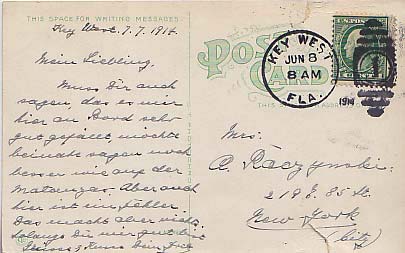 THIS SPACE FOR WRITING MESSAGES
Key West. 7.7.1914.
Mein Liebling.
Muss Dir auch
sagen, das es mir
hier an Bord sehr
gut gefällt, möchte
beinahe sagen noch
besser wie auf der
Matanzas. Aber auch
hier ist ein fehler.
Das macht aber nichts
solange Du mir gut bist
Kuss Dein
POST CARD
THIS
ADDR
KEY WEST
JUN 8
8 AM
FLA.
1914
U.S. POSTAGE
1 CENT 1
1
Mrs.
A. Raczynski.
218 E. 85 St.
New-York
(City)